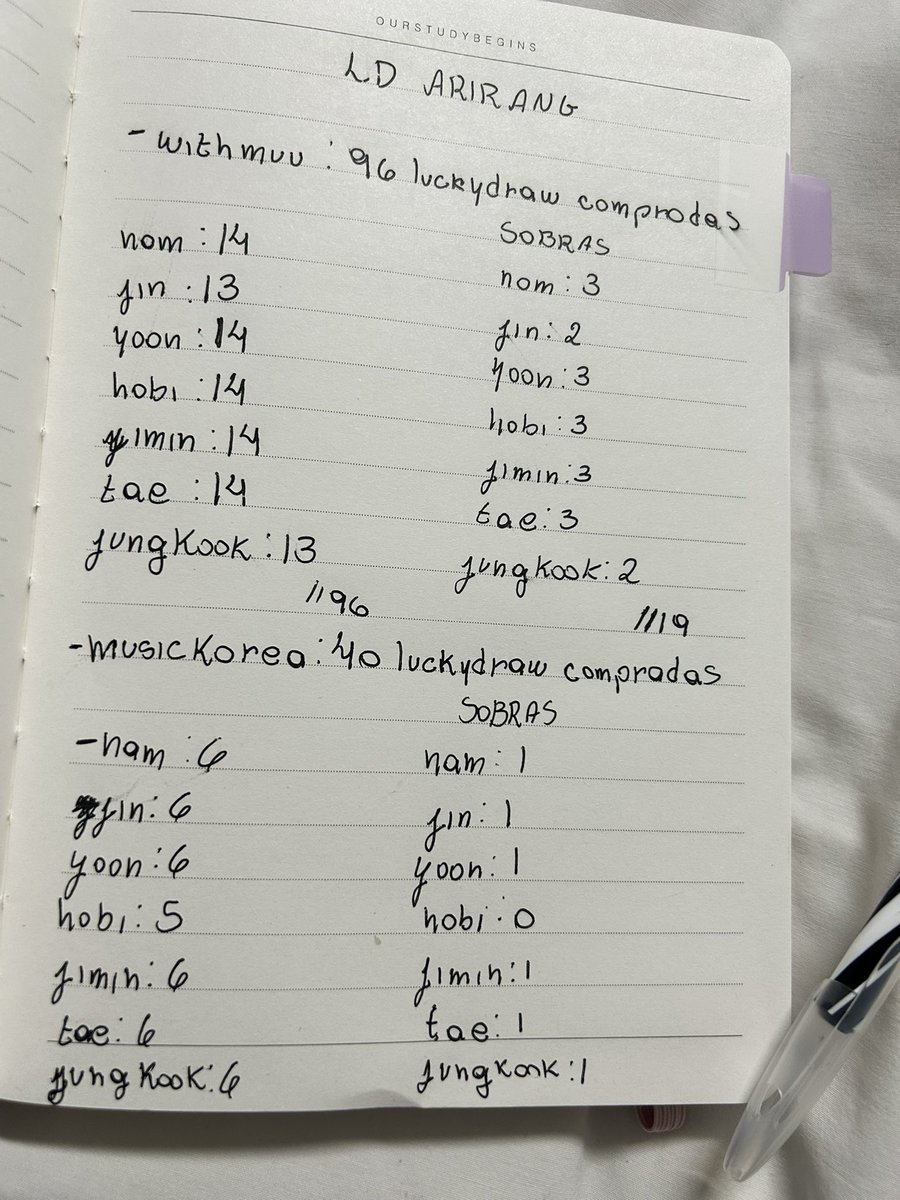 OURSTUDYBEGINS
LD ARIRANG
- withmuu : 96 luckydraw compradas
nam : 14
jin : 13
yoon : 14
hobi : 14
jimin : 14
tae : 14
jungkook : 13
//96
SOBRAS
nam : 3
jin : 2
yoon : 3
hobi : 3
jimin : 3
tae : 3
jungkook : 2
//19
- musicKorea : 40 luckydraw compradas
- nam : 6
jin : 6
yoon : 6
hobi : 5
jimin : 6
tae : 6
jungkook : 6
SOBRAS
nam : 1
jin : 1
yoon : 1
hobi : 0
jimin : 1
tae : 1
jungkook : 1